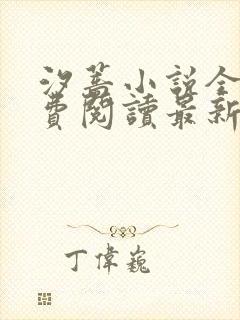 汐蓋小説全
費閱讀最新
丁偉巍